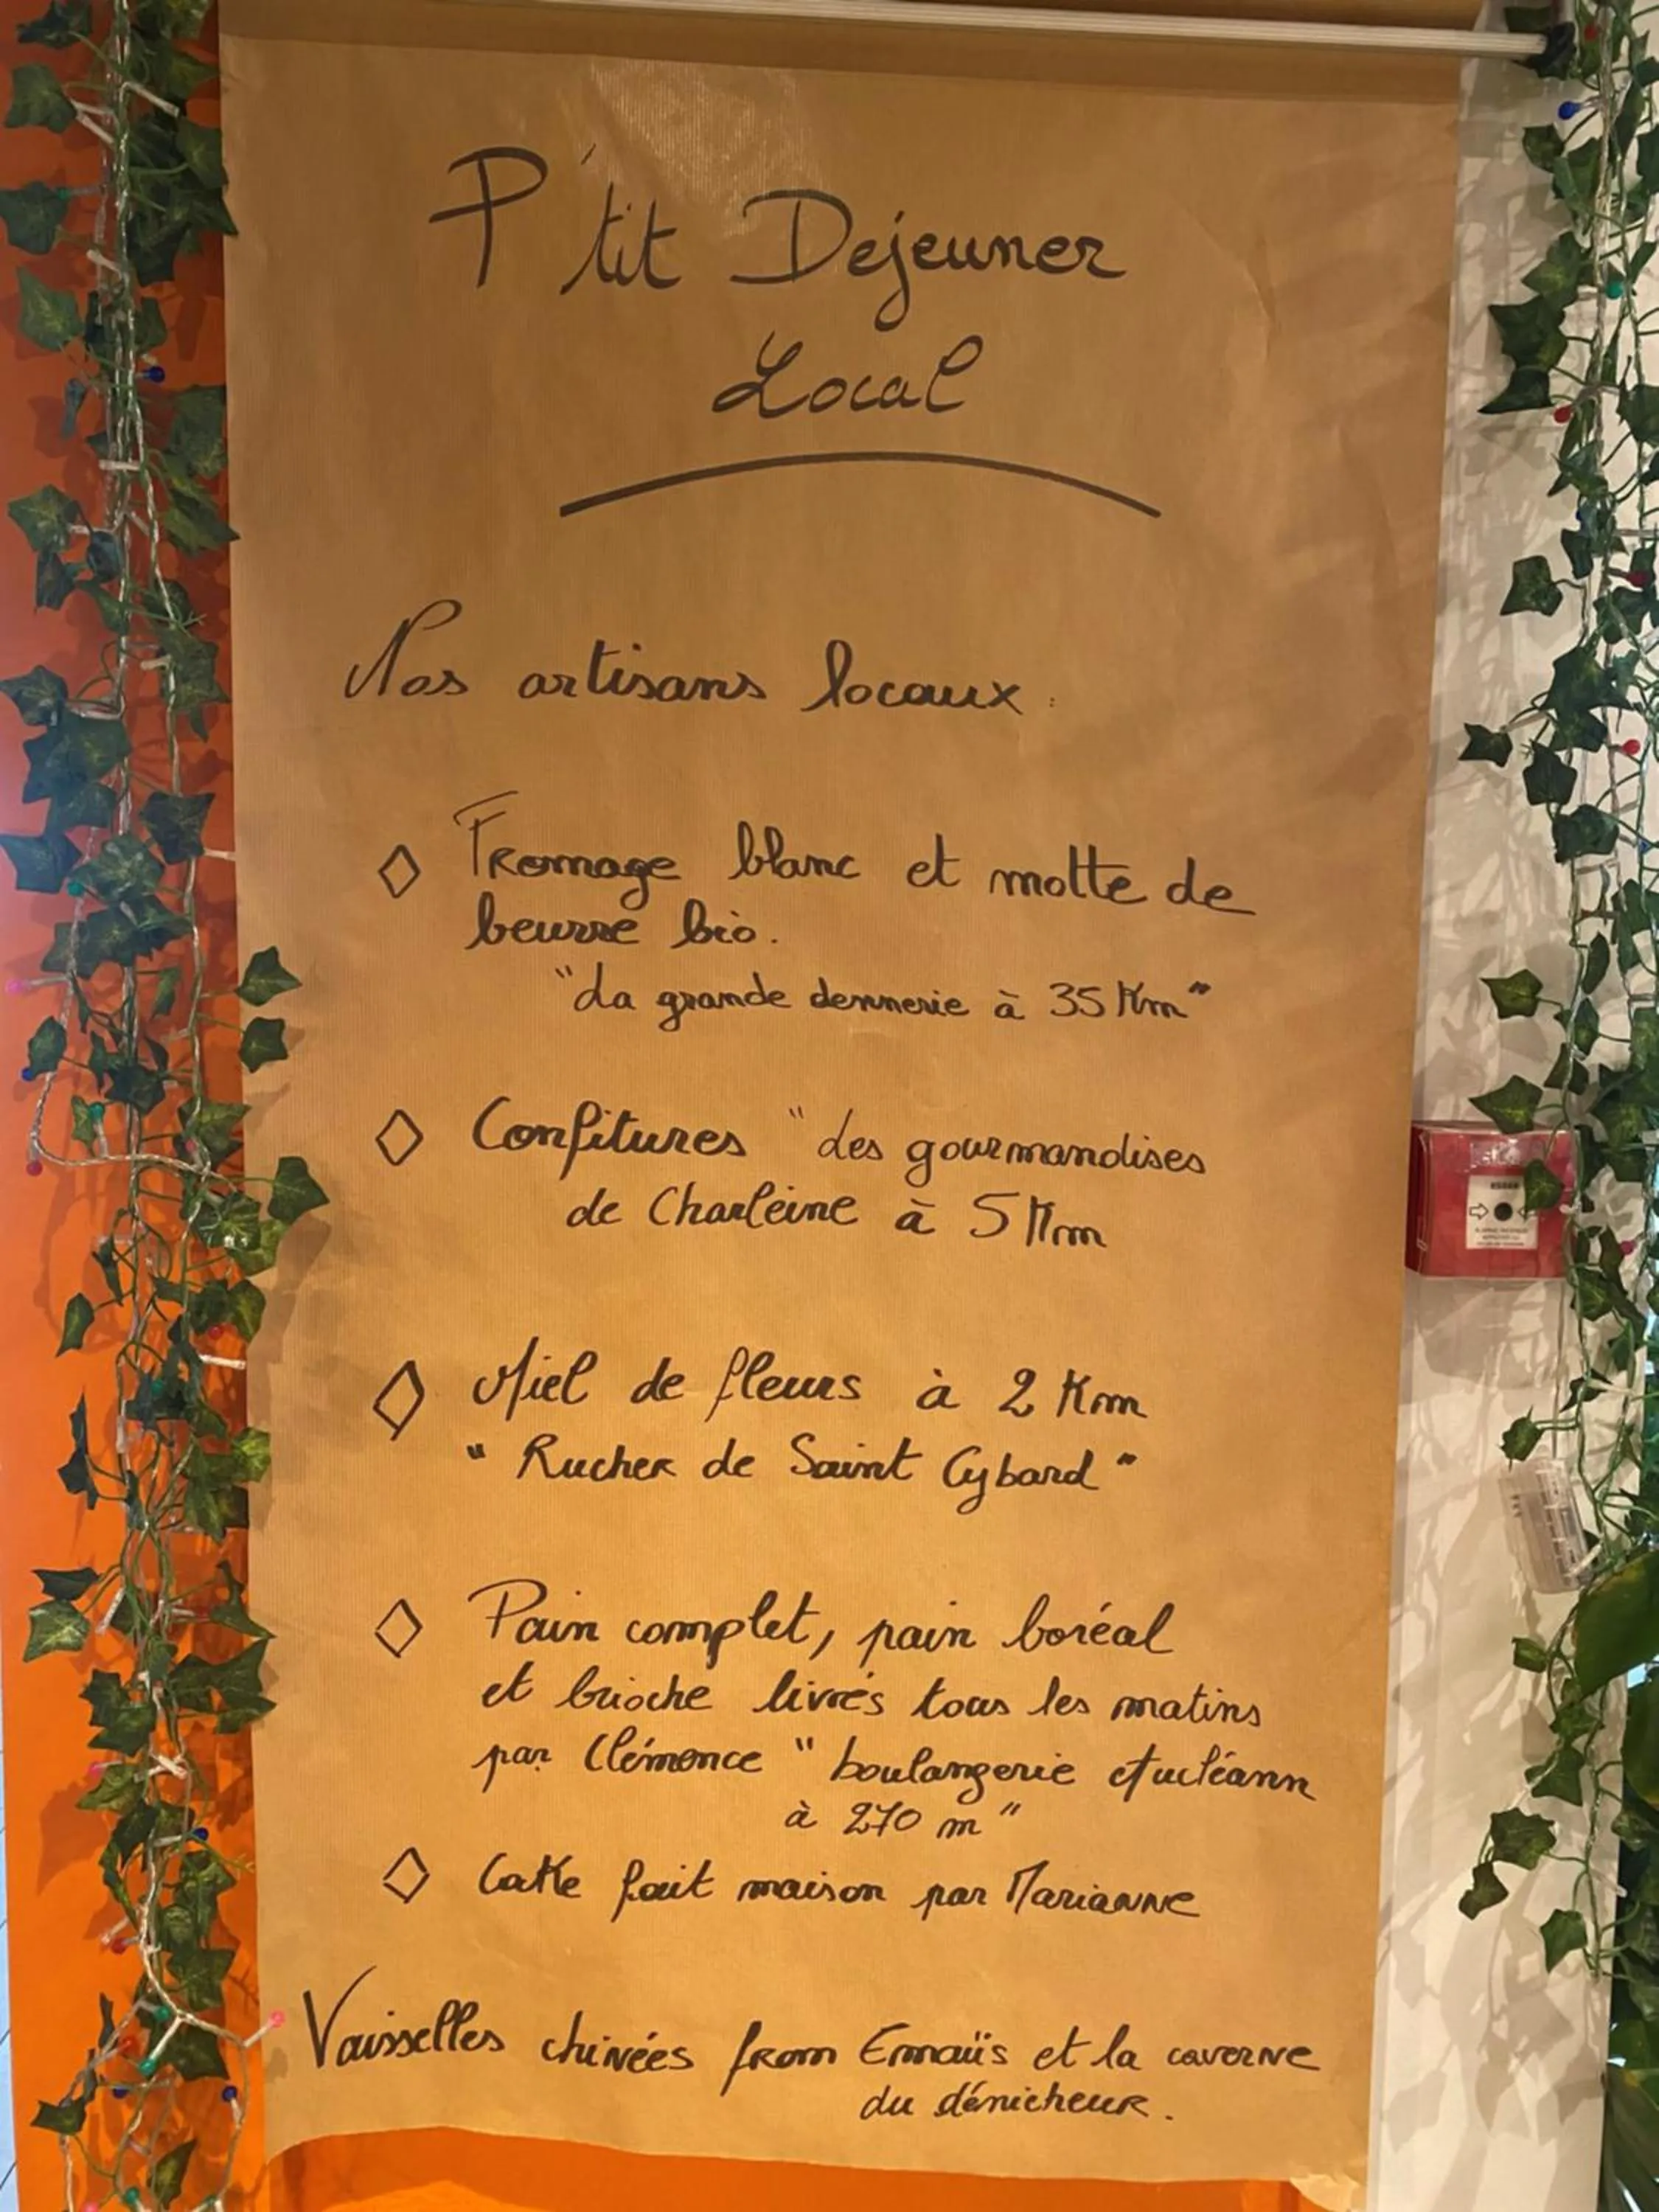 P'tit Dejeuner
Local
Nos artisans locaux :
◇ Fromage blanc et motte de
beurre bio.
"La grande dennerie à 35 Km"
◇ Confitures "des gourmandises
de Charleine à 5 Km
◇ Miel de fleurs à 2 Km
" Rucher de Saint Cybard "
◇ Pain complet, pain boréal
et brioche livrés tous les matins
par Clémence " boulangerie
à 270 m "
◇ Cake fait maison par Marianne
Vaisselles chinées from Emmaüs et la caverne
du dénicheur.